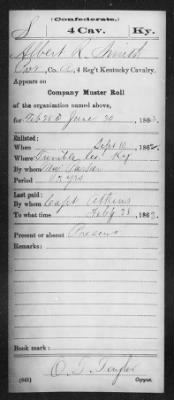 (Confederate.)
S 4 Cav. Ky.
Albert R. Smith
Co. A, 4 Reg't Kentucky Cavalry.
Appears on
Company Muster Roll
of the organization named above,
for Feb 28 to June 30, 1863.
Enlisted:
When Sept 10, 1862.
Where Trimble Co. Ky
By whom
Period 3 yrs
Last paid:
By whom Capt.
To what time Feb'y 28, 1863.
Present or absent Present
Remarks:
Book mark:
(642) Copyist.